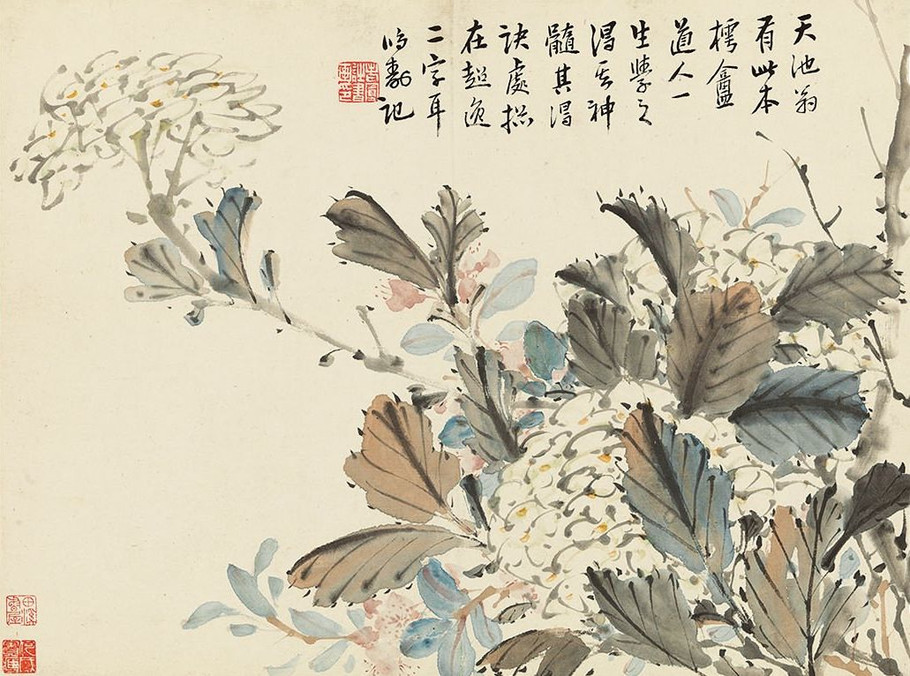 天池翁
有此本
樗盦
道人一
生學之
淂其神
髓其淂
訣處摠
在超逸
二字耳
記